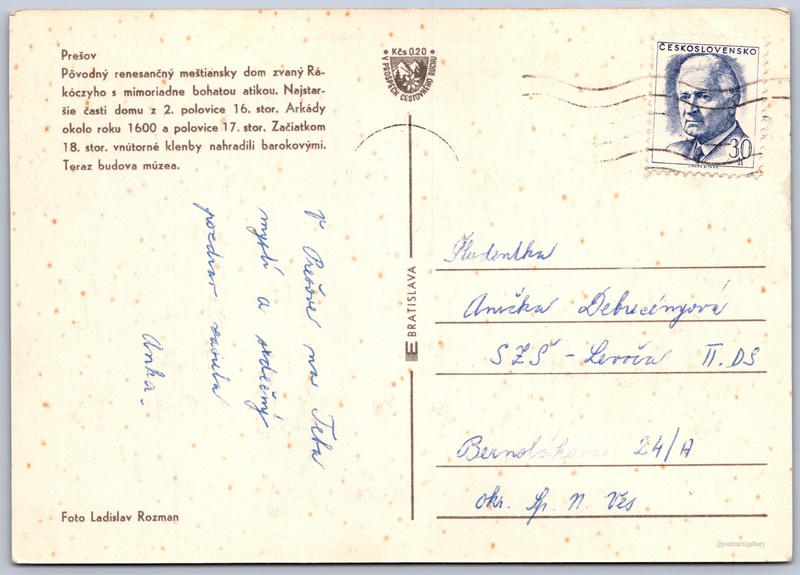 Prešov
Pôvodný renesančný meštiansky dom zvaný Rá-
kóczyho s mimoriadne bohatou atikou. Najstar-
šie časti domu z 2. polovice 16. stor. Arkády
okolo roku 1600 a polovice 17. stor. Začiatkom
18. stor. vnútorné klenby nahradili barokovými.
Teraz budova múzea.
V Prešove na Teba
myslí a srdečný
pozdrav zasiela
Anka.
Foto Ladislav Rozman
Kčs 0.20
V PROSPECH CESTOVNÉHO RUCHU
BRATISLAVA
ČESKOSLOVENSKO
30
h
Študentka
Anička
SZŠ - Levoča II. DS
Bernolákova 24/A
okr. Sp. N. Ves